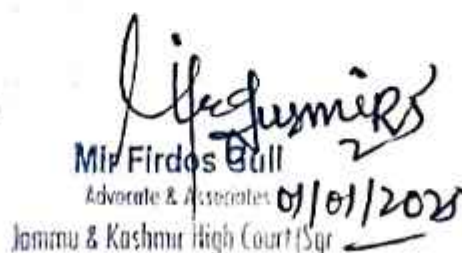 Mir Firdos Gull
Advocate & Associates 01/01/2025
Jammu & Kashmir High Court (Sgr